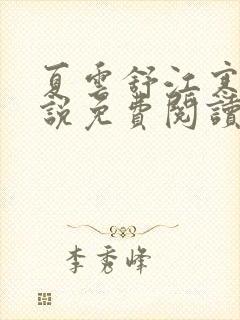 夏雲舒江寒
說免費閱讀
李秀峰